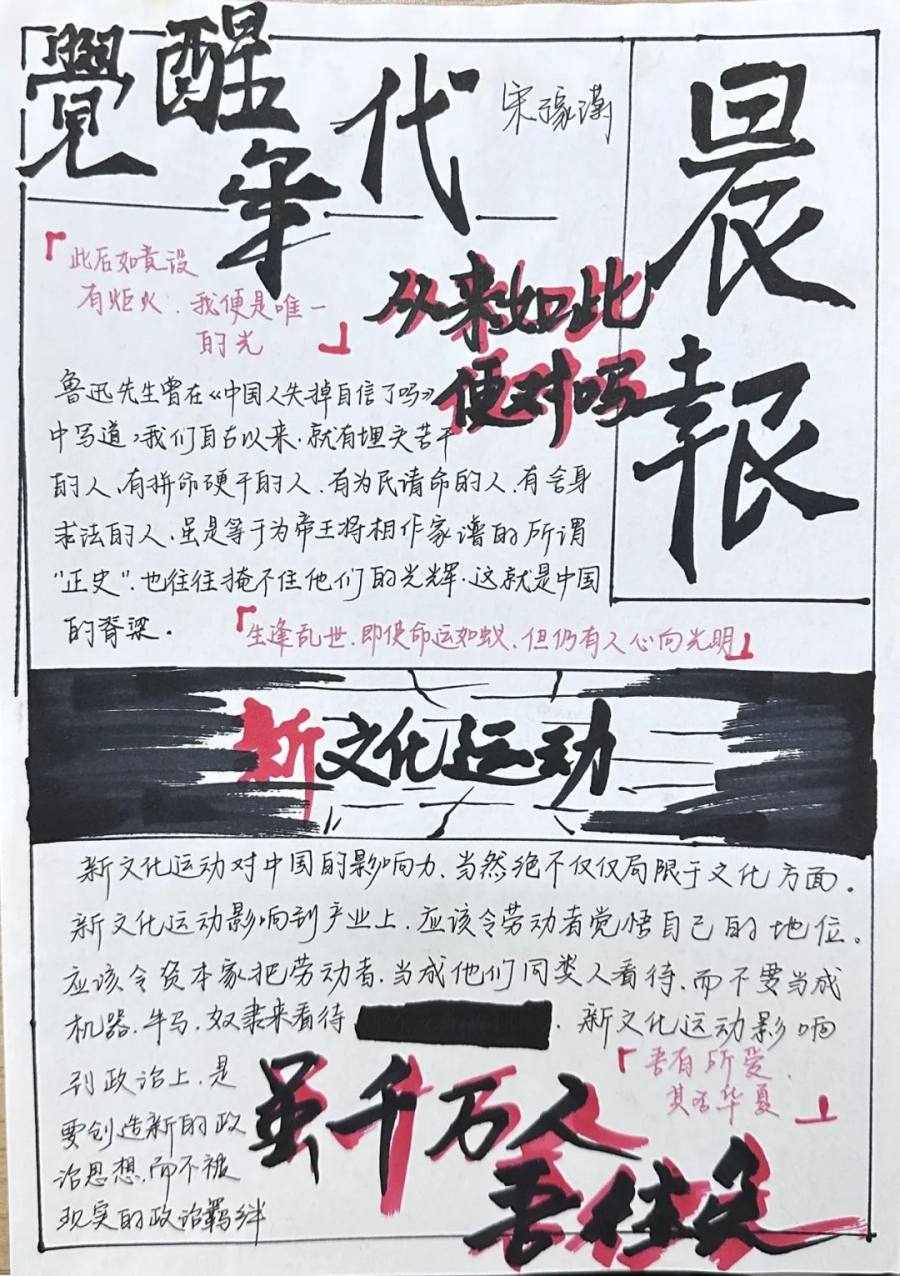 覺醒年代
晨報
「此后如竟没
有炬火,我便是唯一
的光」
从来如此
便对吗
鲁迅先生曾在《中国人失掉自信了吗》
中写道,我们自古以来,就有埋头苦干
的人、有拼命硬干的人、有为民请命的人、有舍身
求法的人,虽是等于为帝王将相作家谱的所谓
“正史”,也往往掩不住他们的光辉,这就是中国
的脊梁.
「生逢乱世、即使命运如蚁、但仍有人心向光明」
新文化运动
新文化运动对中国的影响力,当然绝不仅仅局限于文化方面。
新文化运动影响到产业上,应该令劳动者觉悟自己的地位。
应该令资本家把劳动者,当成他们同类人看待,而不要当成
机器、牛马、奴隶来看待 . 新文化运动影响
到政治上,是
要创造新的政
治思想,而不被
现实的政治羁绊
「吾有所爱,
其名华夏」
虽千万人
吾往矣